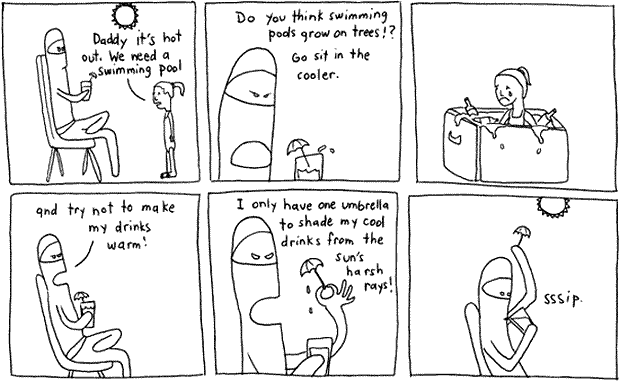 Daddy it's hot
out. We need a
swimming pool
Do you think swimming
pods grow on trees!?
Go sit in the
cooler.
and try not to make
my drinks
warm!
I only have one umbrella
to shade my cool
drinks from the
sun's
harsh
rays!
sssip.